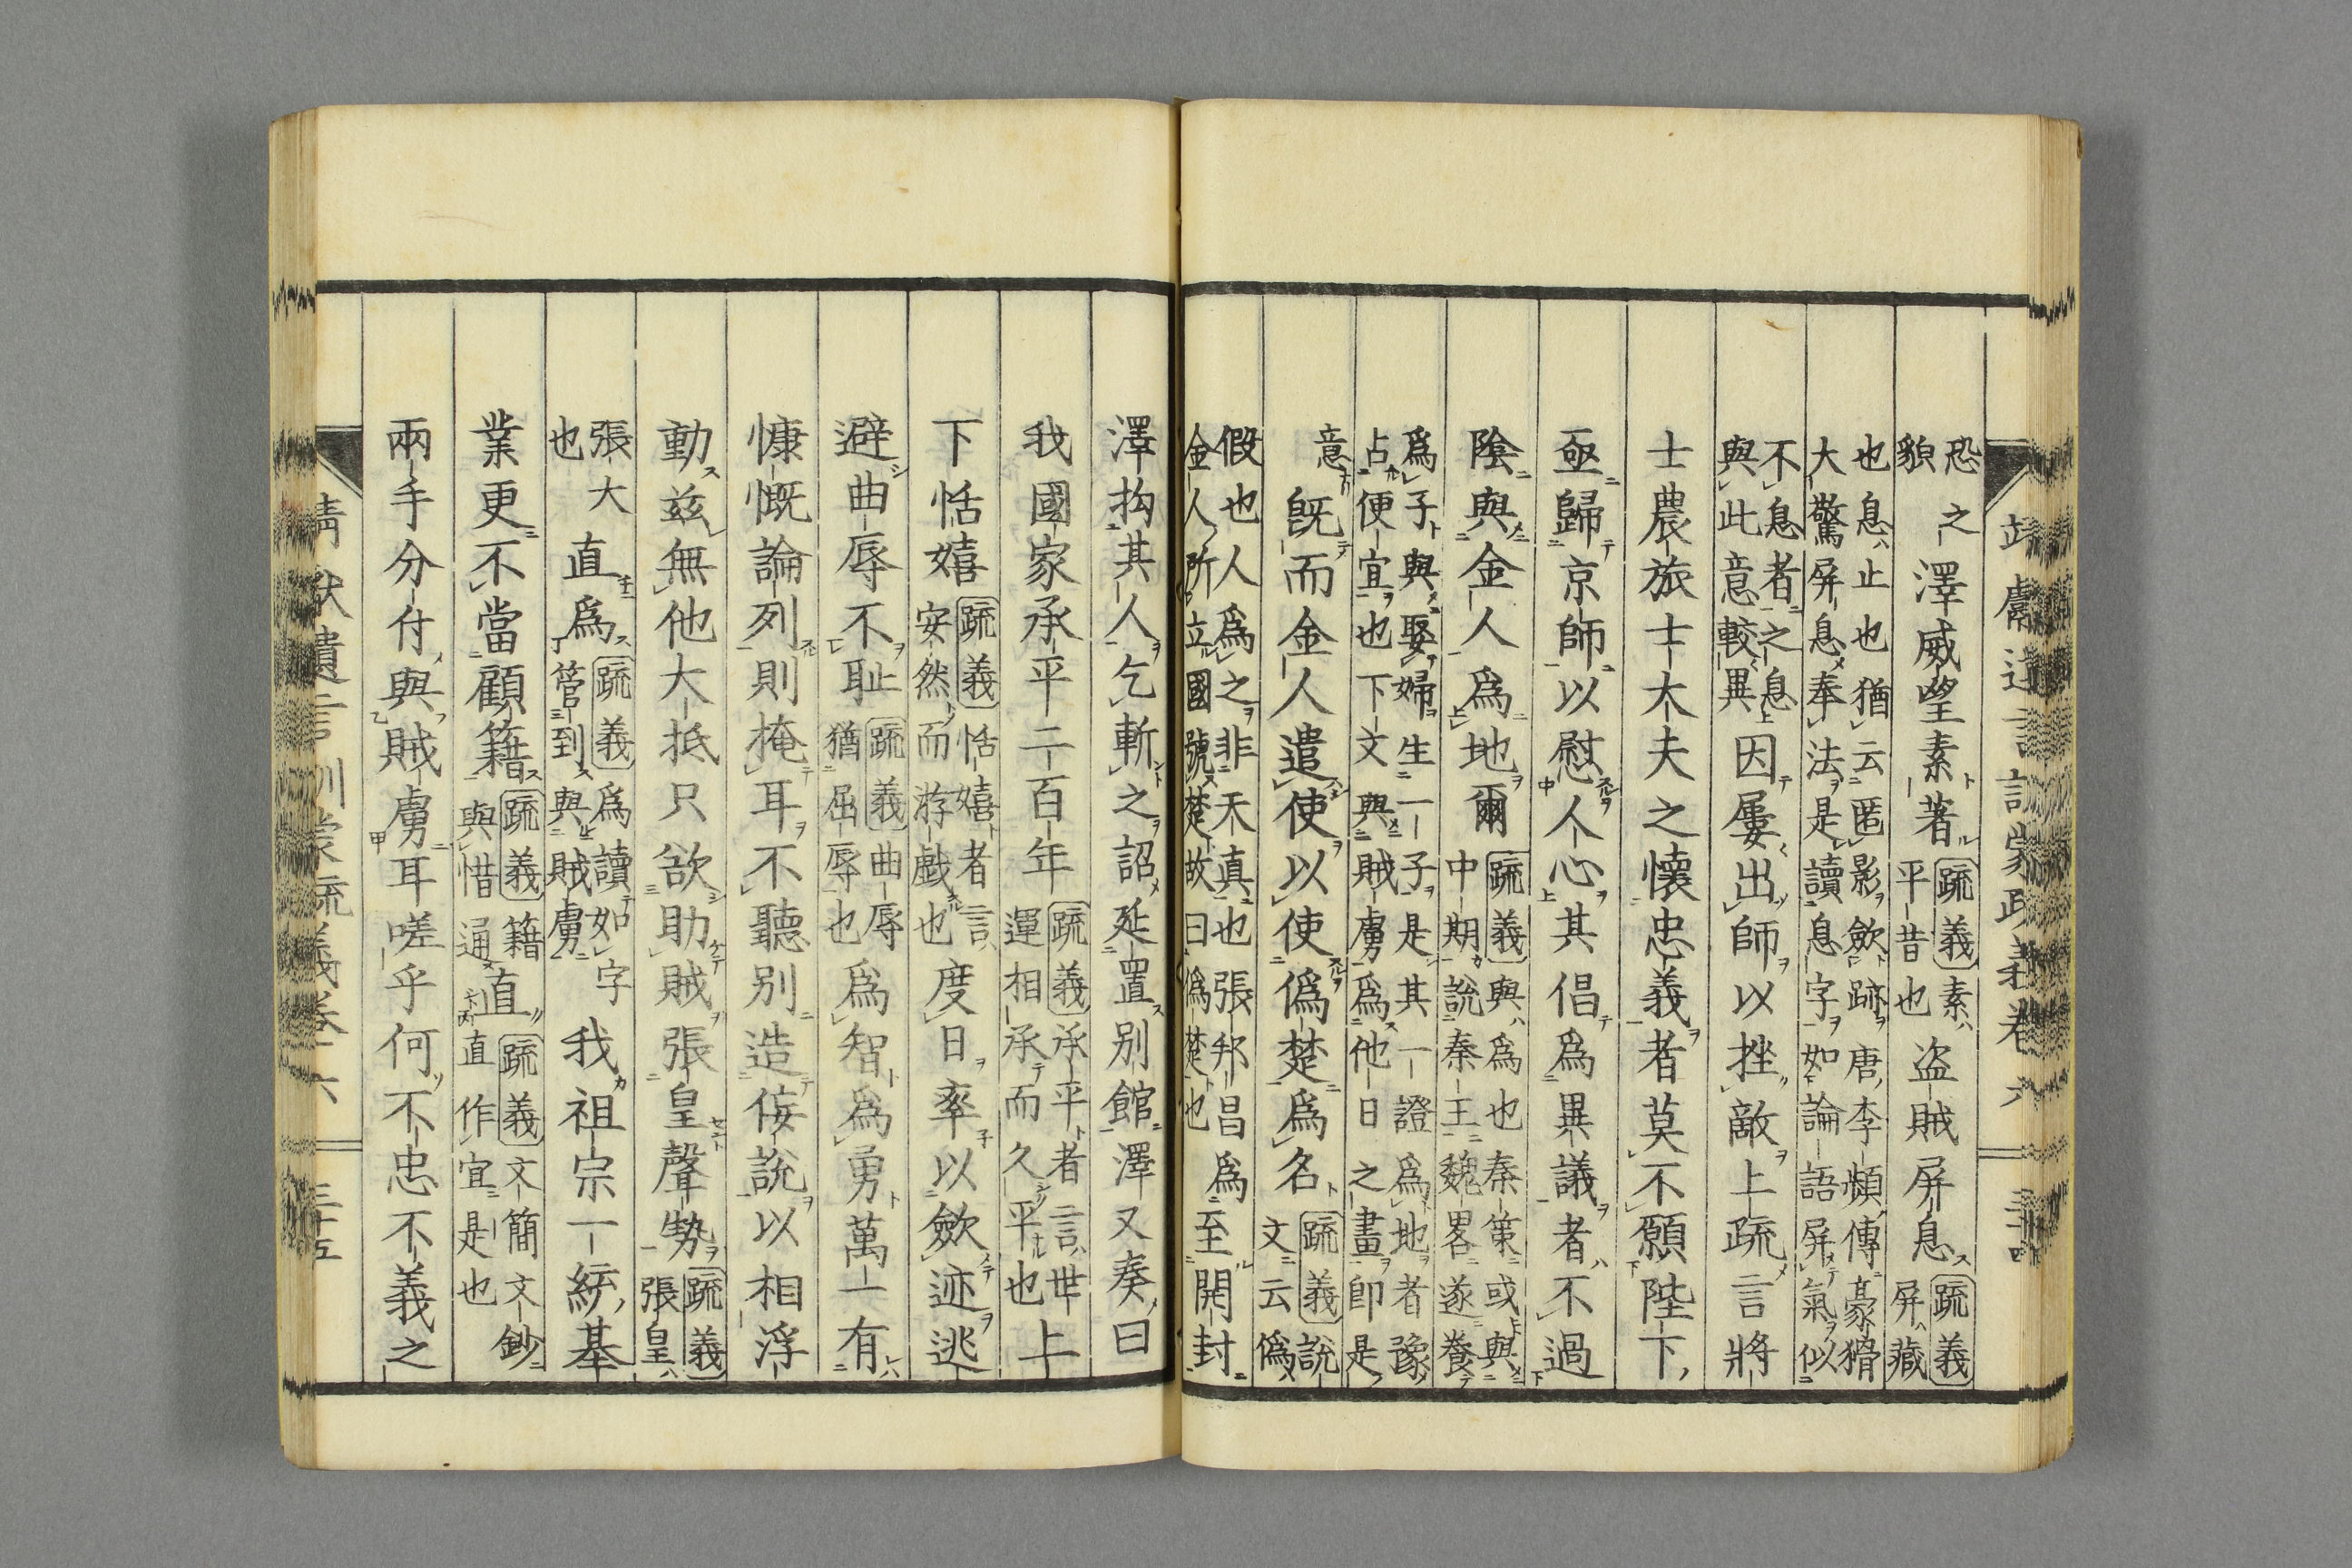 恐之
貌
澤威望素著
疏義素
平昔也
盗賊屏息
疏義
屏藏
也息止也猶云匿影歛跡唐李頻傳豪猾
大驚屏息奉法是讀息字如論語屏氣似
不息者之息
與此意較異
因屢出師以挫敵上疏言將
士農旅士大夫之懷忠義者莫不願陛下
亟歸京師以慰人心其倡爲異議者不過
陰與金人爲地爾
疏義與爲也秦策或與
中期說秦王魏畧遂養
爲子與娶婦生一子是其一證爲地者豫
占便宜也下文與賊虜爲他日之畫卽是
意
旣而金人遣使以使僞楚爲名
疏義說
文云僞
假也人爲之非天真也張邦昌爲
金人所立國號楚故曰僞楚也
至開封
澤拘其人乞斬之詔延置別館澤又奏曰
我國家承平二百年
疏義承平者言世
運相承而久平也
上
下恬嬉
疏義恬嬉者言
安然而游戯也
度日率以歛迹逃
避曲辱不耻
疏義曲辱
猶屈辱也
爲智爲勇萬一有
慷慨論列則掩耳不聽別造侫說以相浮
動兹無他大抵只欲助賊張皇聲勢
疏義
張皇
張大
也
直爲
疏義爲讀如字
管到與賊虜
我祖宗一統基
業更不當顧籍
疏義籍
與惜通
直
疏義文簡文鈔
直作宜是也
兩手分付與賊虜耳嗟乎何不忠不義之